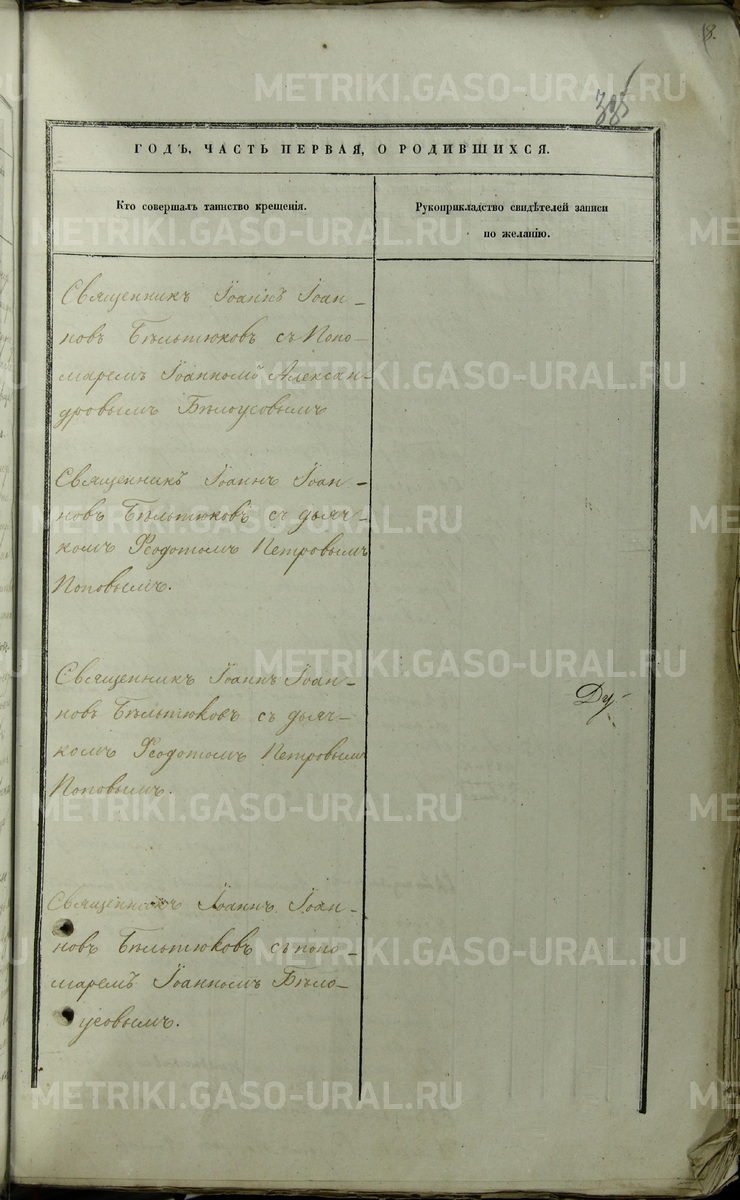 8.
335
ГОДЪ, ЧАСТЬ ПЕРВАЯ, О РОДИВШИХСЯ.
Кто совершалъ таинство крещенія.
Рукоприкладство свидѣтелей записи
по желанію.
Священникъ Іоаннъ Іоан-
новъ Бѣльтюковъ съ Поно-
маремъ Іоанномъ Алексан-
дровымъ Бѣлоусовымъ
Священникъ Іоаннъ Іоан-
новъ Бѣльтюковъ съ дьяч-
комъ Ѳеодотомъ Петровымъ
Поповымъ.
Священникъ Іоаннъ Іоан-
новъ Бѣльтюковъ съ дьяч-
комъ Ѳеодотомъ Петровымъ
Поповымъ.
Ду-
Священникъ Іоаннъ Іоан-
новъ Бѣльтюковъ съ поно-
маремъ Іоанномъ Бѣло-
усовымъ.
METRIKI.GASO-URAL.RU